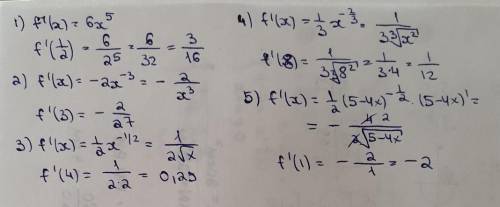 1) f'(x) = 6x⁵
f'(1/2) = 6/2⁵ = 6/32 = 3/16
2) f'(x) = -2x⁻³ = - 2/x³
f'(3) = - 2/27
3) f'(x) = 1/2 x^(-1/2) = 1/(2√x)
f'(4) = 1/(2·2) = 0,25
4) f'(x) = 1/3 x^(-2/3) = 1/(3∛x²)
f'(8) = 1/(3∛8²) = 1/(3·4) = 1/12
5) f'(x) = 1/2 (5-4x)^(-1/2) · (5-4x)' =
= - 4 2/(2√(5-4x))
f'(1) = - 2/1 = -2